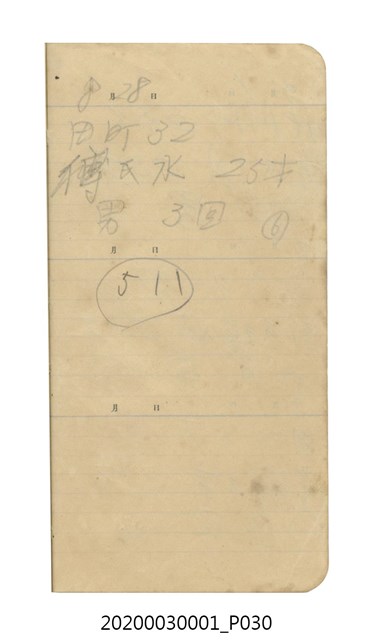 8月28日
田町32
傅氏水 25才
男 3回 ⑥
月 日
511
月 日
20200030001_P030